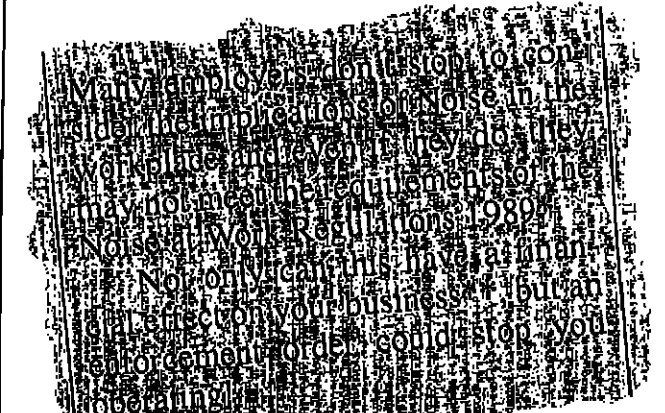 Many employers don't stop to con-
sider the implications of Noise in the
workplace and even if they do, they
may not meet the requirements of the
Noise at Work Regulations 1989.
Not only can this have a finan-
cial effect on your business - but an
enforcement order could stop you
operating!